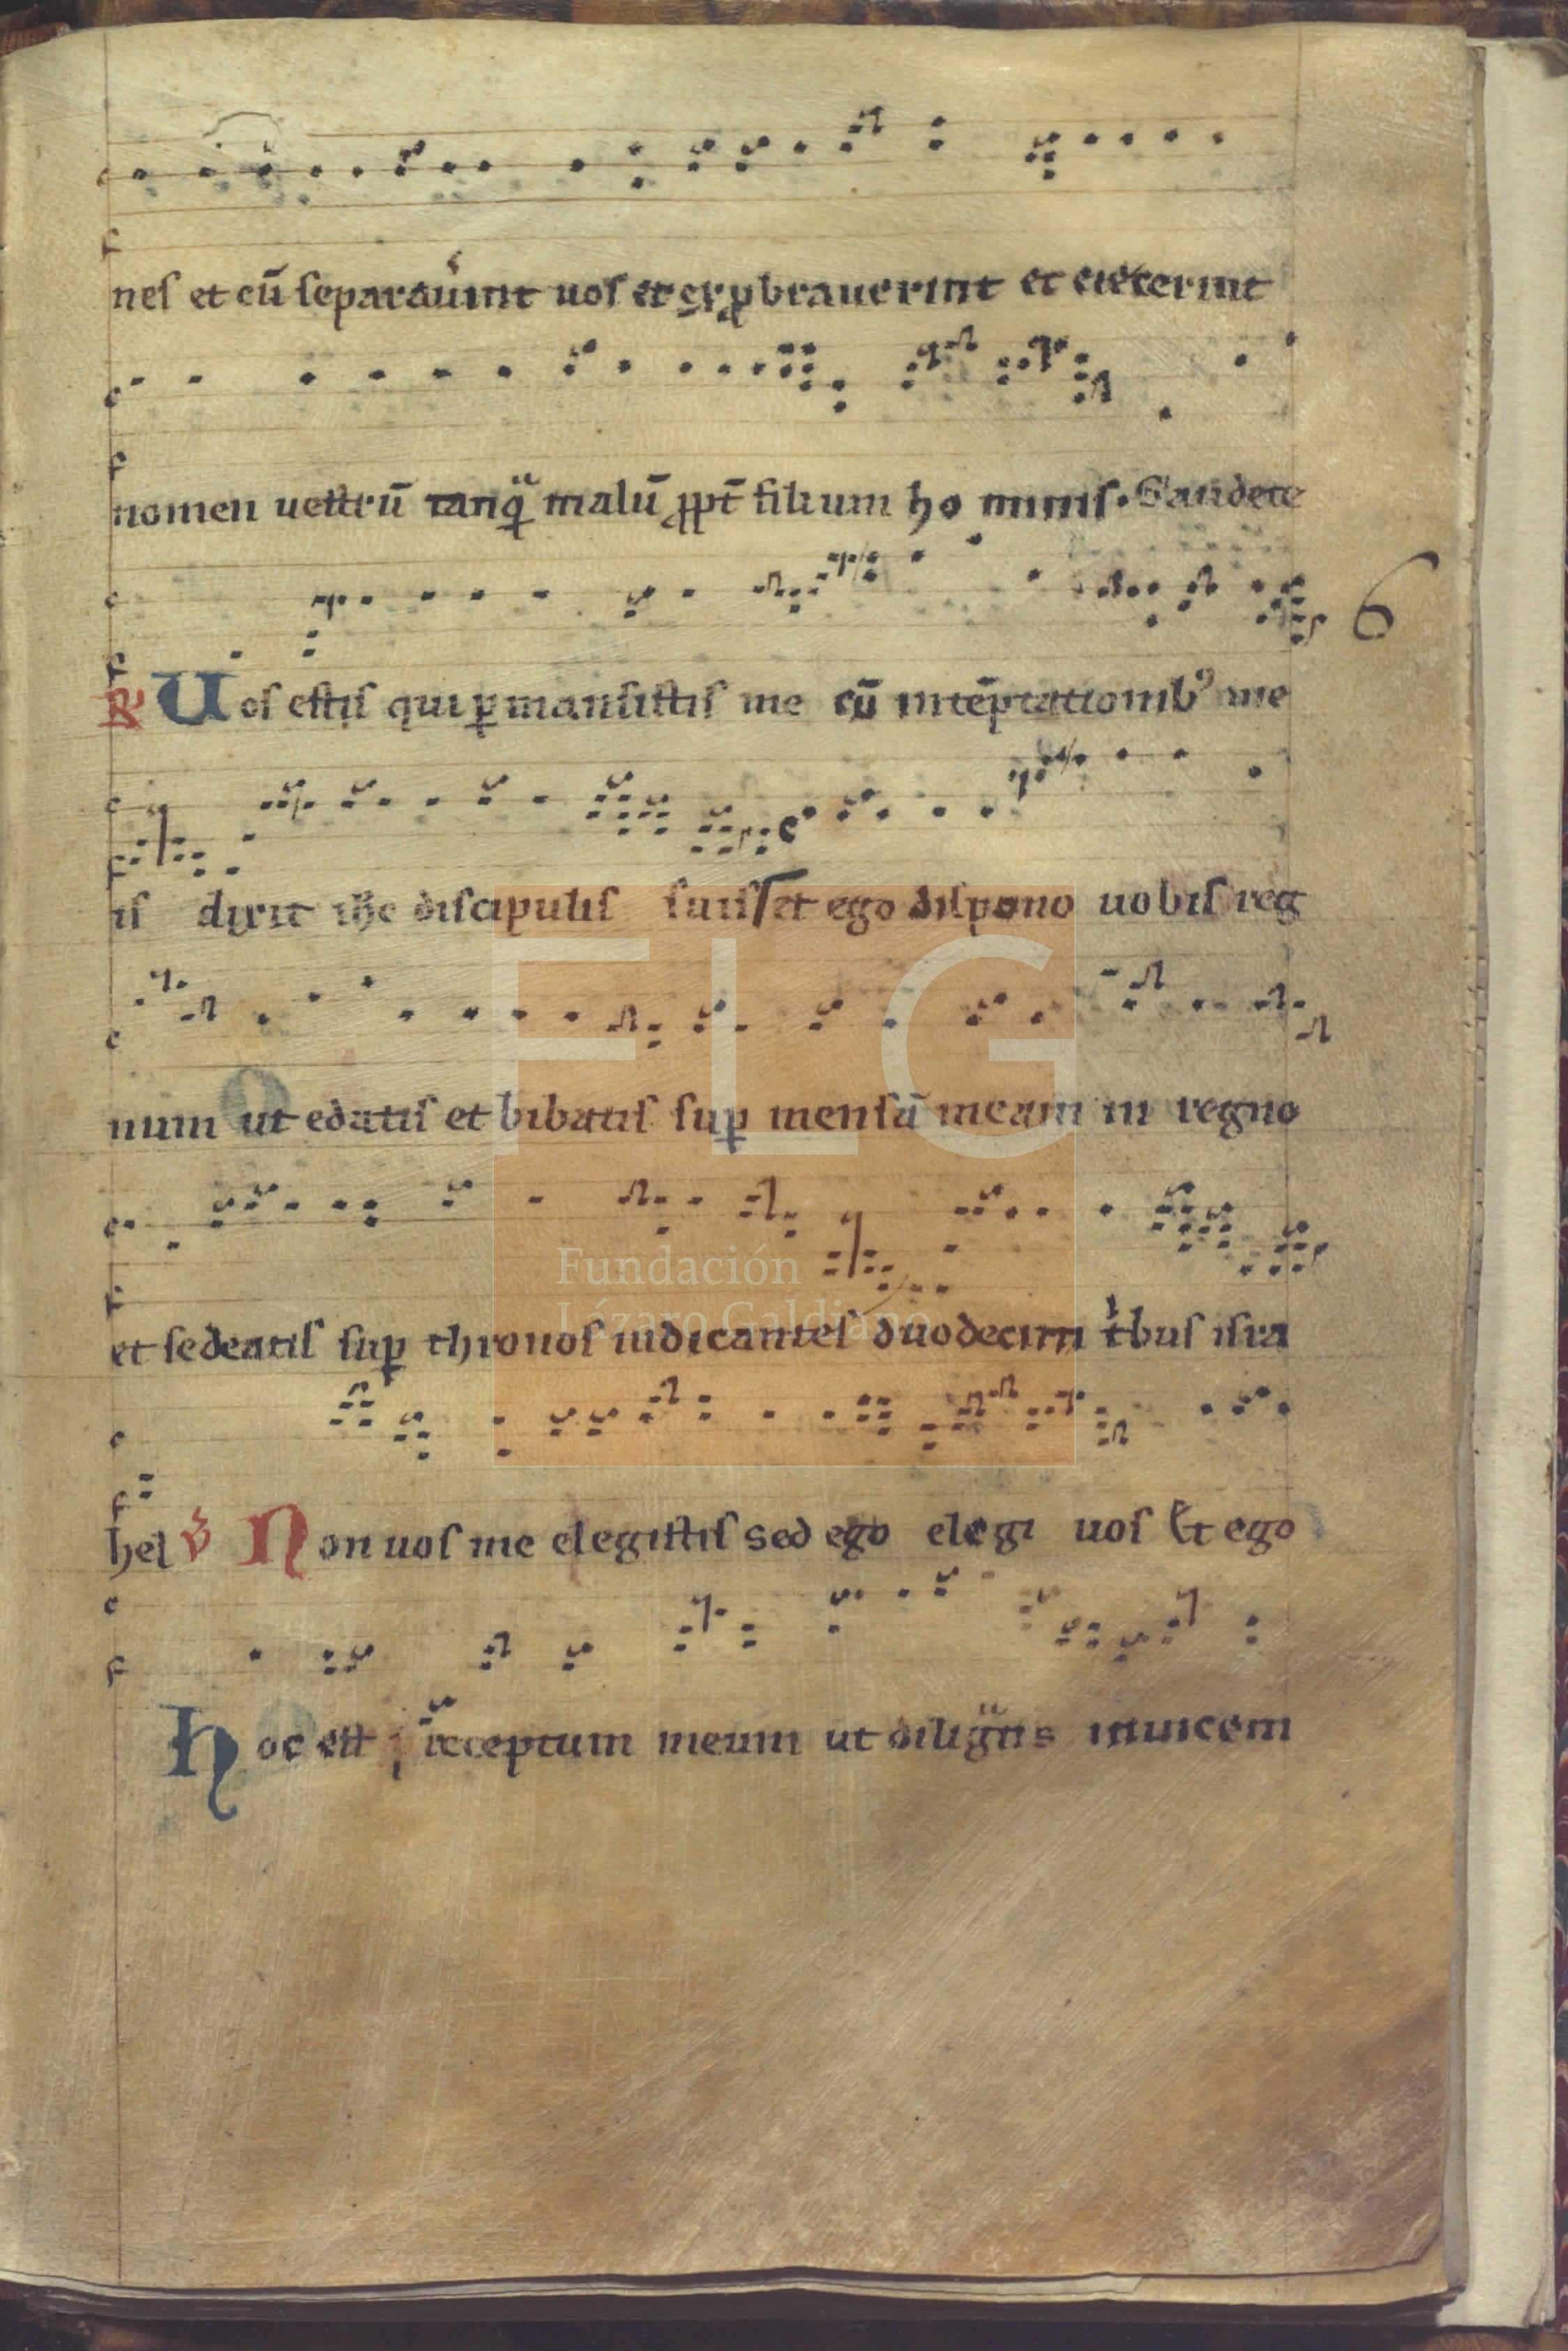 nes et cū separaūint uos et exp̱brauerint et eiecerint
nomen uestrū tanq̃ malū ꝓpt̄ filium ho minis. Gaudete
6
℟ Uos estis qui ꝑmansistis me cū intēptationib᾽ me
is dixit ih̄c discipulis suis et ego dispono uobis reg
num ut edatis et bibatis suꝑ mensā meam in regno
et sedeatis suꝑ thronos iudicantes duodecim tⁱbus isra
hel ℣ Non uos me elegistis sed ego elegi uos Et ego
Hoc est p̃ceptum meum ut diligatis inuicem
FLG
Fundación
Lázaro Galdiano